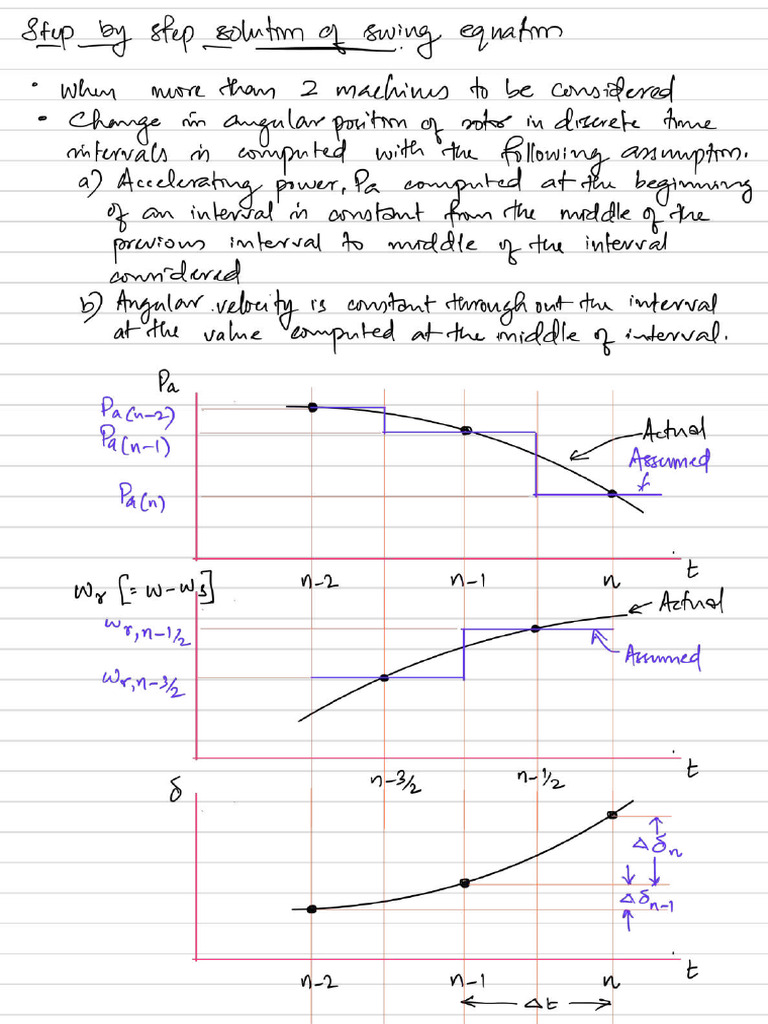 Step by step solution of swing equation
• When more than 2 machines to be considered
• Change in angular position of rotor in discrete time
intervals is computed with the following assumption.
a) Accelerating power, Pa computed at the beginning
of an interval is constant from the middle of the
previous interval to middle of the interval
considered
b) Angular velocity is constant through out the interval
at the value computed at the middle of interval.
Pa
Pa(n-2)
Pa(n-1)
Actual
Assumed
Pa(n)
n-2 n-1 n t
ωr [= ω-ωs]
Actual
ωr,n-1/2
Assumed
ωr,n-3/2
n-3/2 n-1/2 t
δ
Δδn
Δδn-1
n-2 n-1 n t
Δt